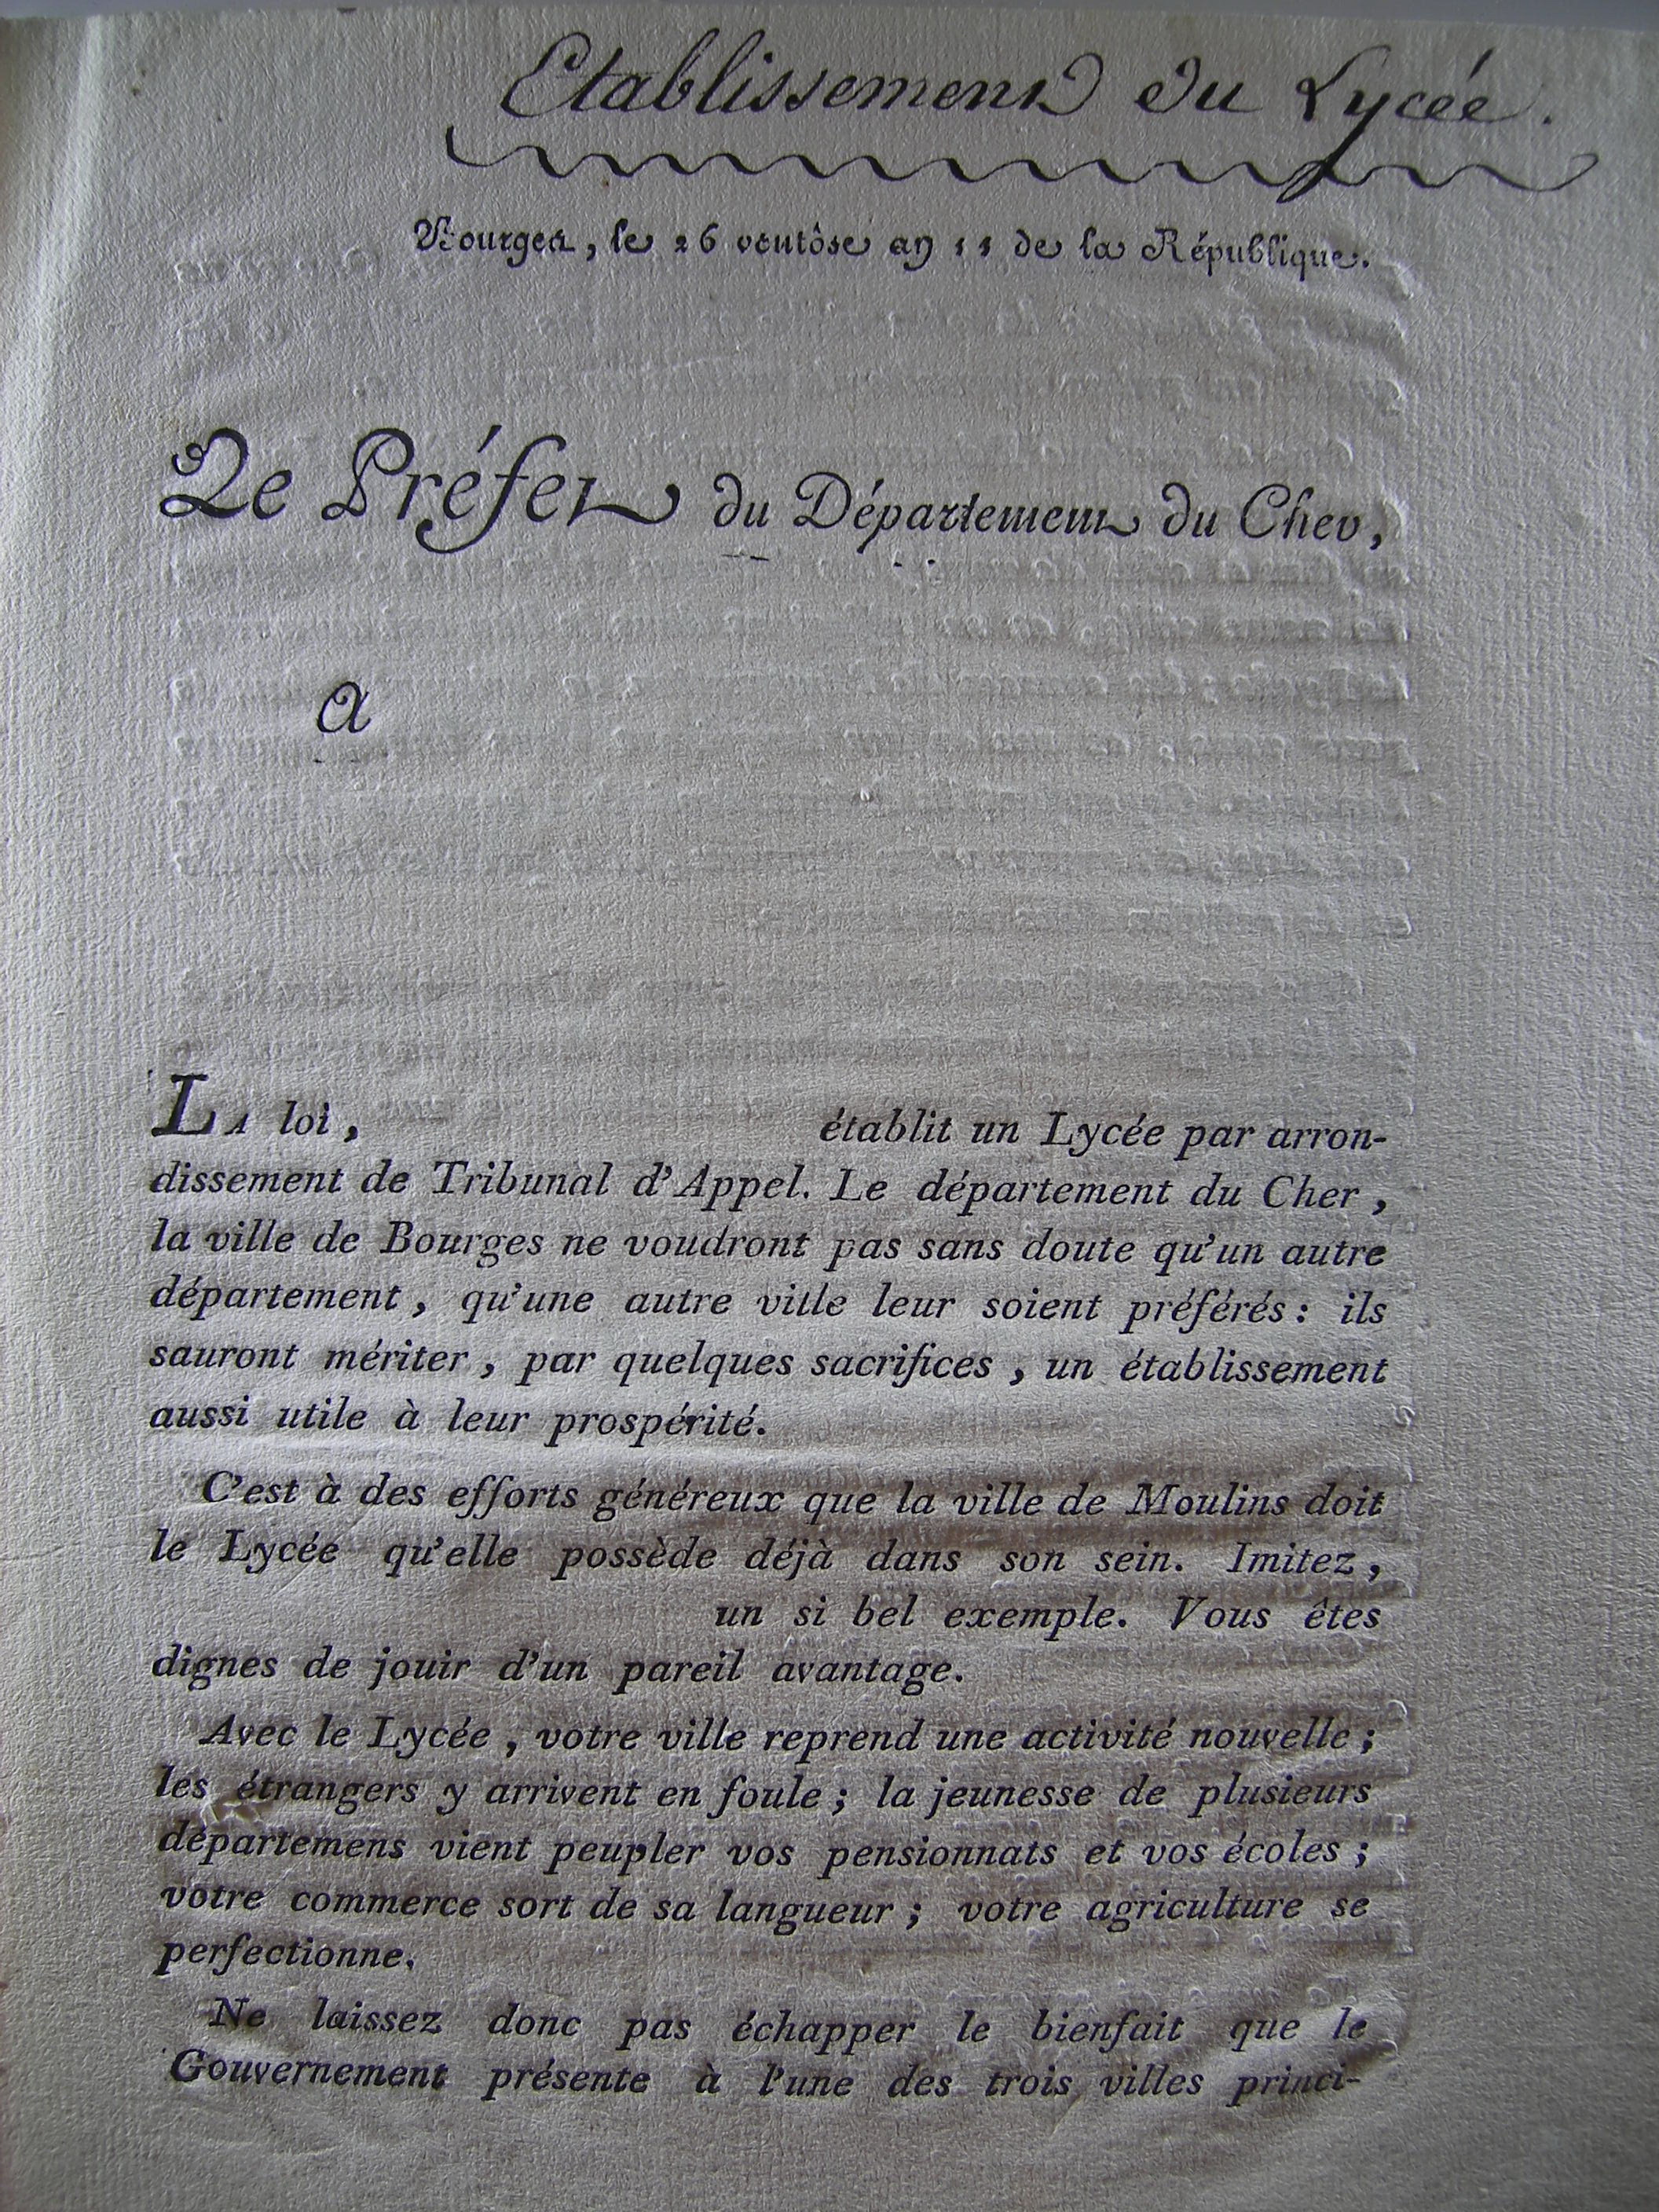 Etablissement du Lycée.
Bourges, le 26 ventôse an 11 de la République.
Le Préfet du Département du Cher,
A
LA loi, établit un Lycée par arron-
dissement de Tribunal d'Appel. Le département du Cher,
la ville de Bourges ne voudront pas sans doute qu'un autre
département, qu'une autre ville leur soient préférés: ils
sauront mériter, par quelques sacrifices, un établissement
aussi utile à leur prospérité.
C'est à des efforts généreux que la ville de Moulins doit
le Lycée qu'elle possède déjà dans son sein. Imitez,
un si bel exemple. Vous êtes
dignes de jouir d'un pareil avantage.
Avec le Lycée, votre ville reprend une activité nouvelle;
les étrangers y arrivent en foule; la jeunesse de plusieurs
départemens vient peupler vos pensionnats et vos écoles;
votre commerce sort de sa langueur; votre agriculture se
perfectionne.
Ne laissez donc pas échapper le bienfait que le
Gouvernement présente à l'une des trois villes princi-